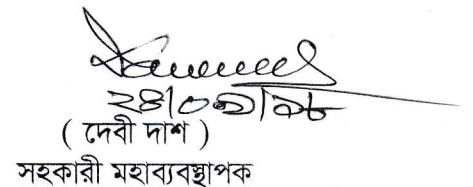 ২৪/০৯/১৮
( দেবী দাশ )
সহকারী মহাব্যবস্থাপক